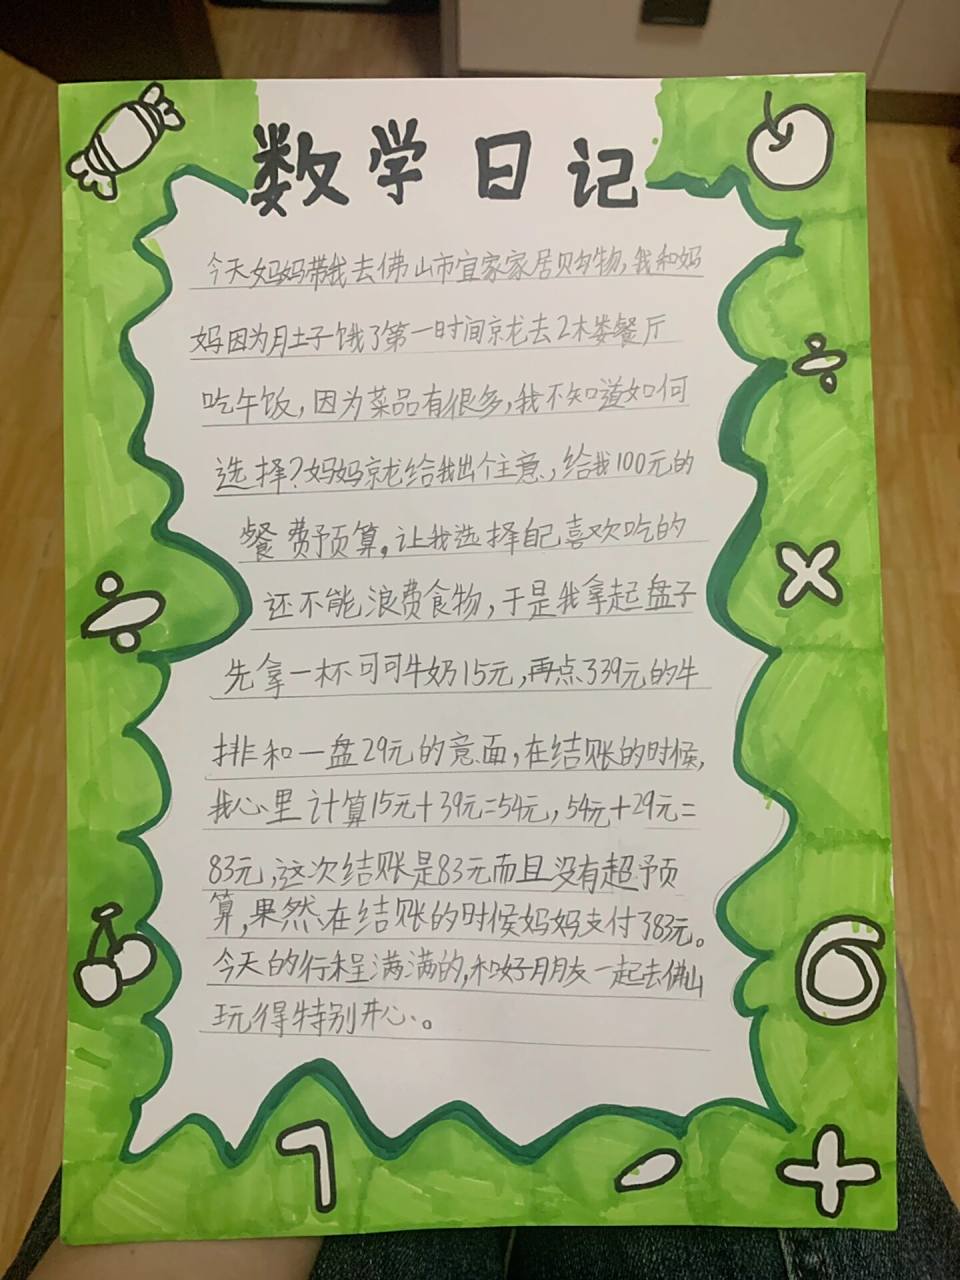 数学日记
今天妈妈带我去佛山市宜家家居购物,我和妈
妈因为肚子饿了第一时间就去2楼餐厅
吃午饭,因为菜品有很多,我不知道如何
选择?妈妈就给我出个主意,给我100元的
餐费预算,让我选择自己喜欢吃的
还不能浪费食物,于是我拿起盘子
先拿一杯可可牛奶15元,再点339元的牛
排和一盘29元的意面,在结账的时候,
我心里计算15元+39元=54元,54元+29元=
83元,这次结账是83元而且没有超预
算,果然在结账的时候妈妈支付383元。
今天的行程满满的,和好朋友一起去佛山
玩得特别开心。
÷
÷
×
6
7
-
+